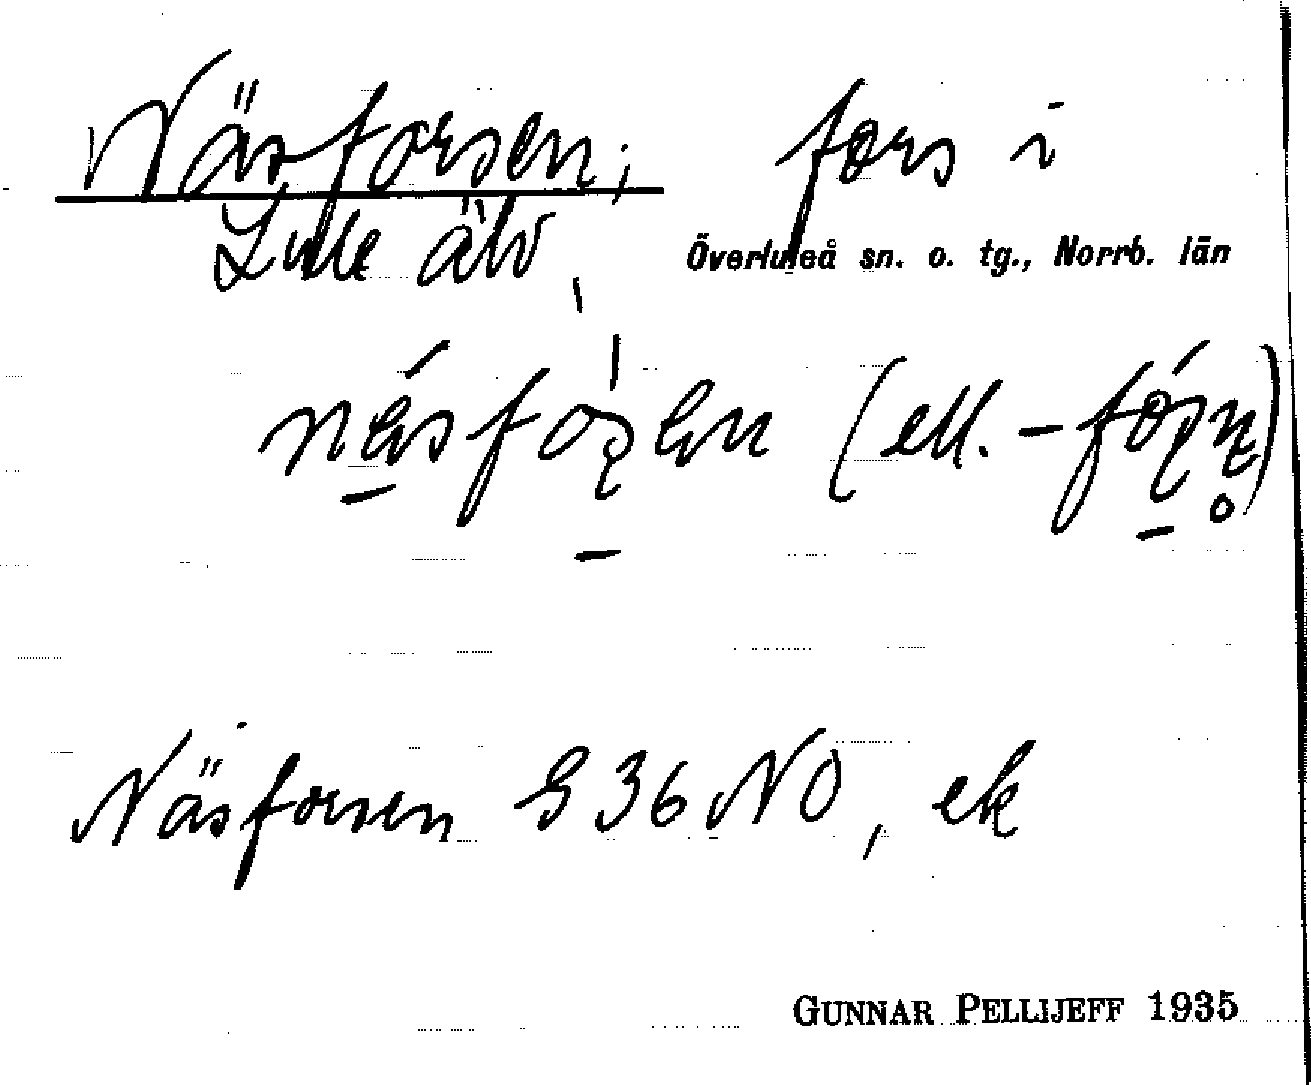 Näsforsen; fors i
Lule älv
Överluleå sn. o. tg., Norrb. län
(ell.
Näsforsen G 36 NO, ek
GUNNAR PELLIJEFF 1935